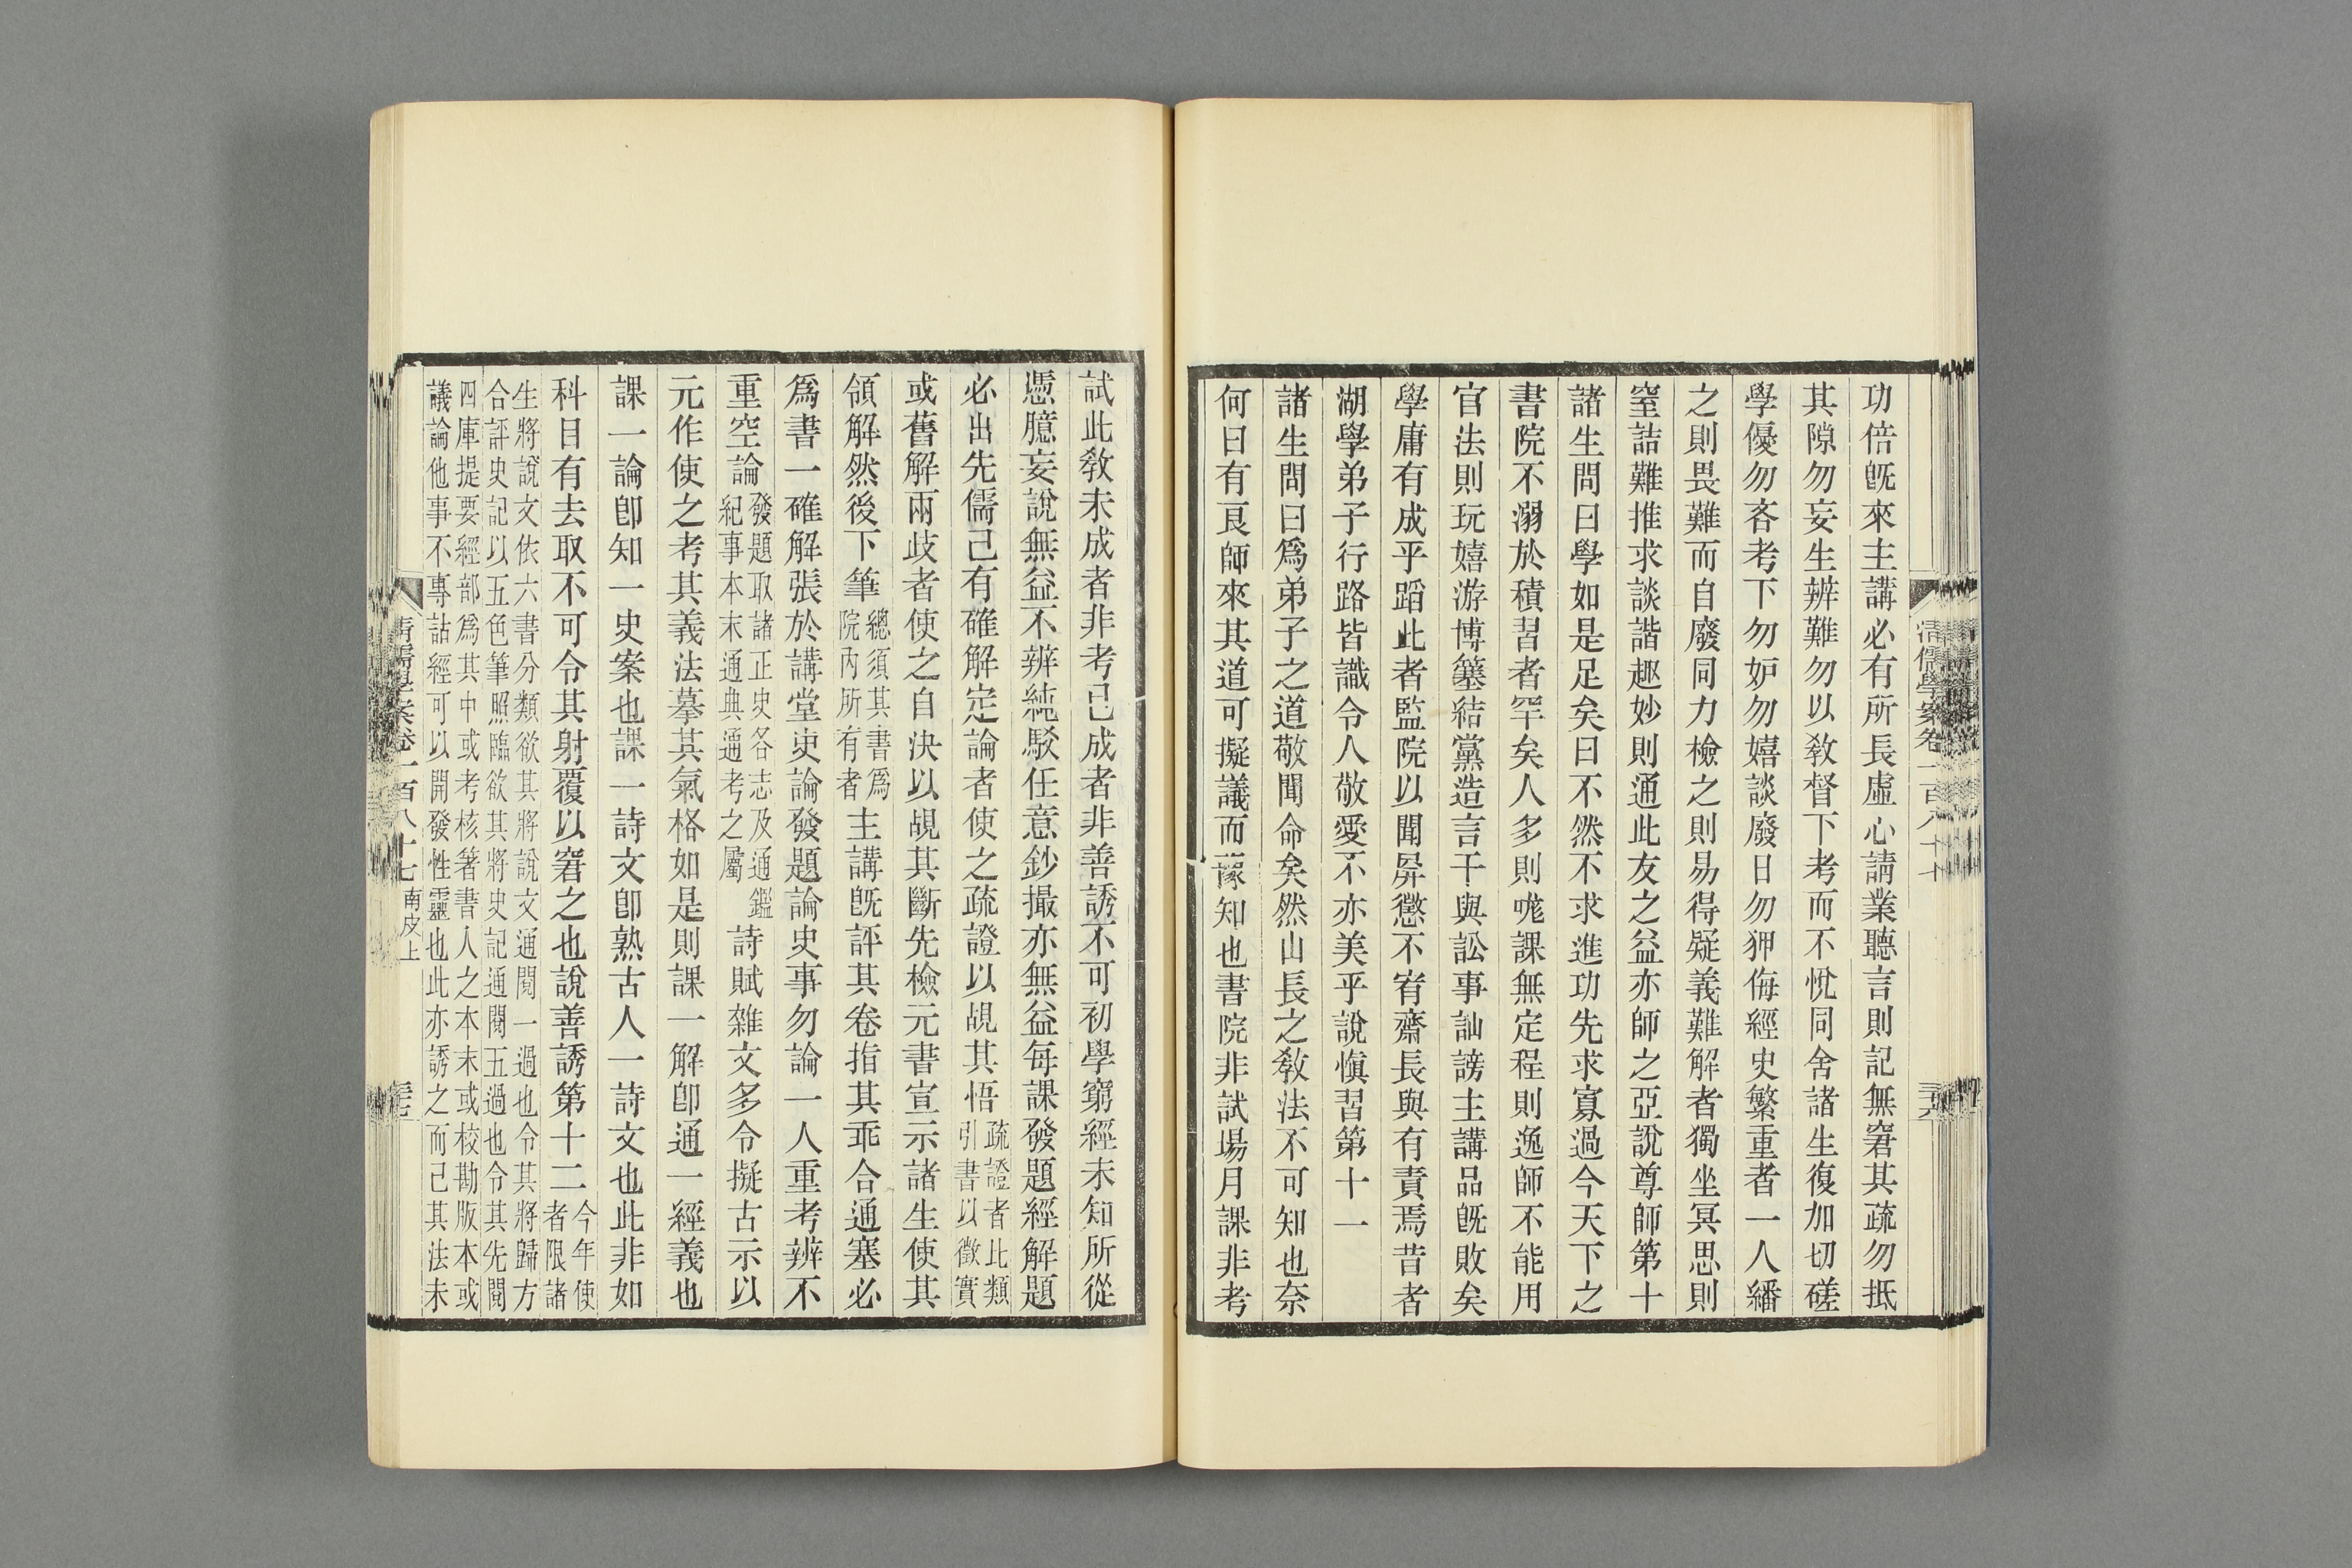 功倍旣來主講必有所長虛心請業聽言則記無窘其疏勿抵
其隙勿妄生辨難勿以敎督下考而不悅同舍諸生復加切磋
學優勿吝考下勿妒勿嬉談廢日勿狎侮經史繁重者一人繙
之則畏難而自廢同力檢之則易得疑義難解者獨坐冥思則
窒詰難推求談諧趣妙則通此友之益亦師之亞說尊師第十
諸生問曰學如是足矣曰不然不求進功先求寡過今天下之
書院不溺於積習者罕矣人多則哤課無定程則逸師不能用
官法則玩嬉游博簺結黨造言干與訟事訕謗主講品旣敗矣
學庸有成乎蹈此者監院以聞屛懲不宥齋長與有責焉昔者
湖學弟子行路皆識令人敬愛不亦美乎說愼習第十一
諸生問曰爲弟子之道敬聞命矣然山長之敎法不可知也奈
何曰有良師來其道可擬議而豫知也書院非試場月課非考
試此敎未成者非考已成者非善誘不可初學窮經未知所從
憑臆妄說無益不辨純駁任意鈔撮亦無益每課發題經解題
必出先儒已有確解定論者使之疏證以覘其悟疏證者比類引書以徵實
或舊解兩歧者使之自決以覘其斷先檢元書宣示諸生使其
領解然後下筆總須其書爲院內所有者主講旣評其卷指其乖合通塞必
爲書一確解張於講堂史論發題論史事勿論一人重考辨不
重空論發題取諸正史各志及通鑑紀事本末通典通考之屬詩賦雜文多令擬古示以
元作使之考其義法摹其氣格如是則課一解卽通一經義也
課一論卽知一史案也課一詩文卽熟古人一詩文也此非如
科目有去取不可令其射覆以窘之也說善誘第十二今年使者限諸
生將說文依六書分類欲其將說文通閱一過也令其將歸方
合評史記以五色筆照臨欲其將史記通閱五過也令其先閱
四庫提要經部爲其中或考核著書人之本末或校勘版本或
議論他事不專詁經可以開發性靈也此亦誘之而已其法未
清儒學案卷一百八十七 南皮上